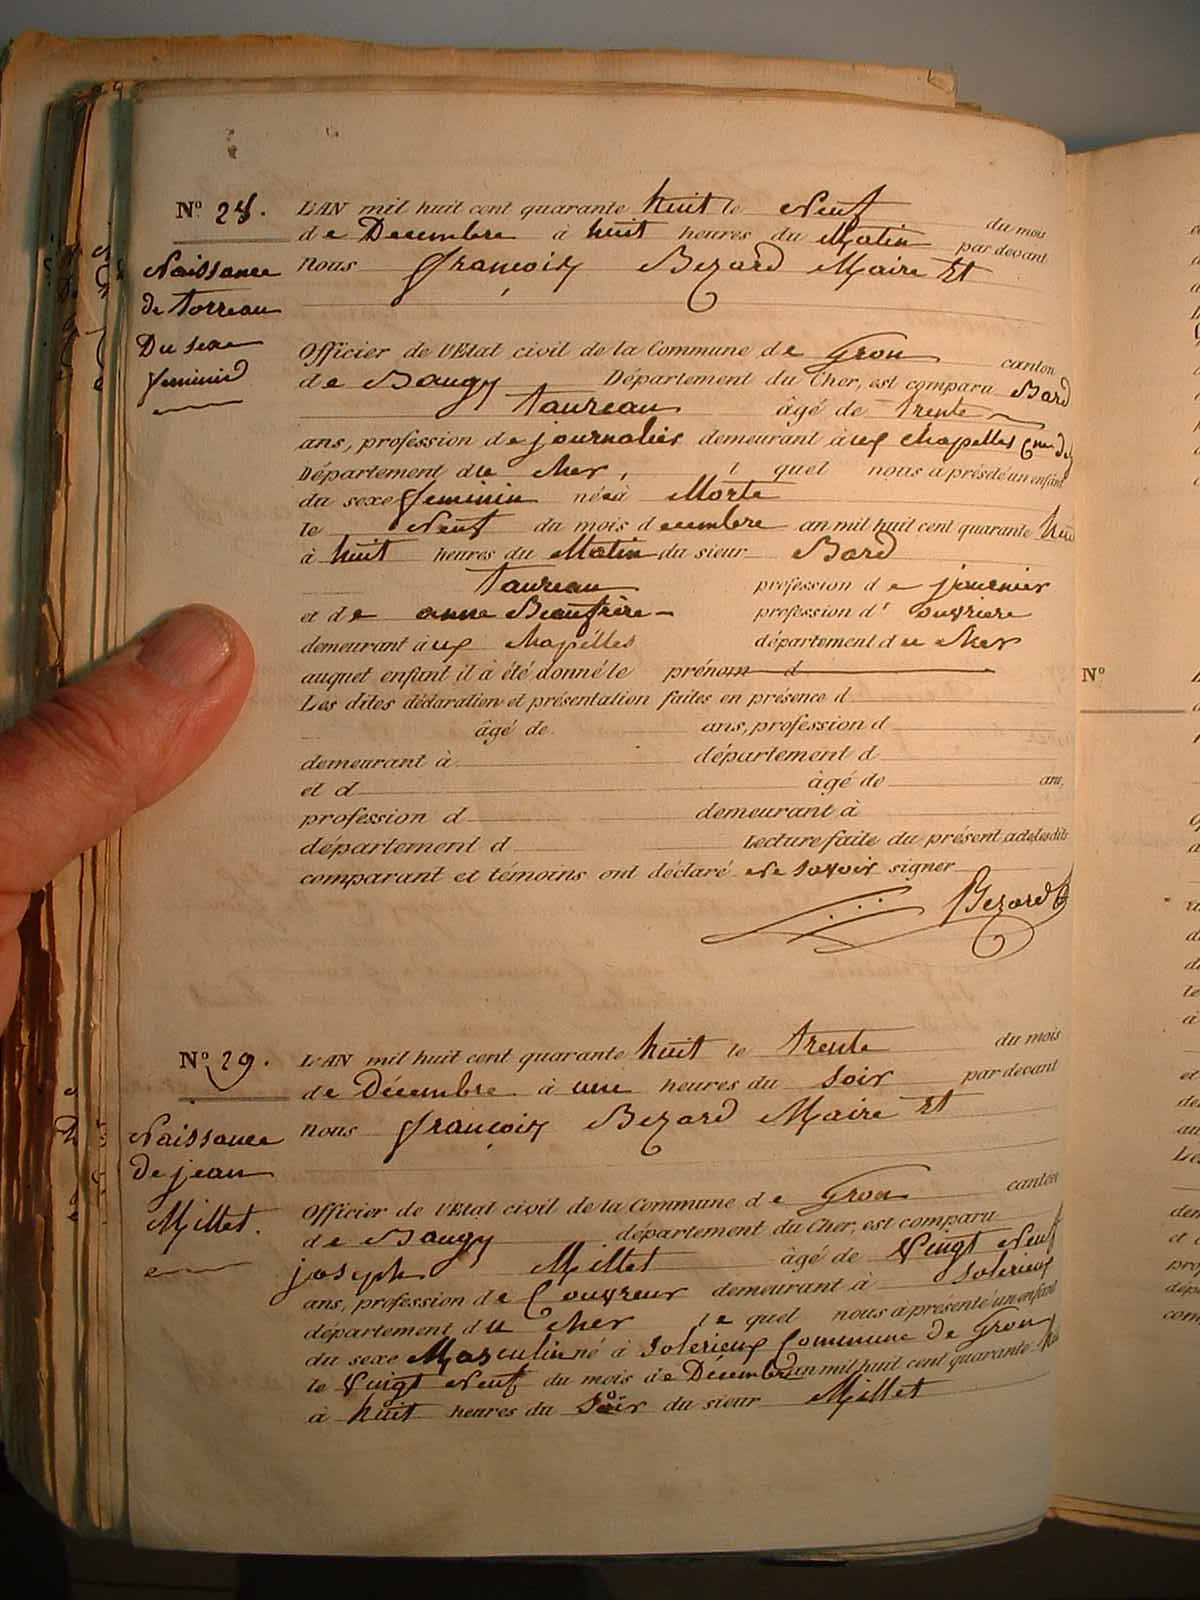 N.º 28.
Naissance
de torreau
Du sexe
feminin
L'AN mil huit cent quarante huit le Neuf du mois
de Decembre à huit heures du Matin par devant
Nous françois Bezard Maire Et
Officier de l'Etat civil de la Commune de Gron canton
de Baugy Département du Cher, est comparu Bard
taureau âgé de trente
ans, profession de journalier demeurant à ux chapelles
Département du cher, l quel nous a présdé un enfant
du sexe feminin né à Morte
le Neuf du mois decembre an mil huit cent quarante
à huit heures du Matin du sieur Bard
Taureau profession de
et de anne Beaufrère profession d' ouvriere
demeurant à ux chapelles département du cher
auquel enfant il à été donné le prénom d
Les dites déclaration et présentation faites en présence d
âgé de ans, profession d
demeurant à département d
et d âgé de ans,
profession d demeurant à
département d Lecture faite du présent acte, les dits
comparant et témoins ont déclaré ne savoir signer
Bezard
N.º 29.
Naissance
de jean
Millet.
L'AN mil huit cent quarante huit le trente du mois
de Décembre à une heures du soir par devant
nous françois Bezard Maire Et
Officier de l'Etat civil de la Commune de Gron canton
de Baugy département du Cher, est comparu
joseph Millet âgé de Vingt Neuf
ans, profession de Couvreur demeurant à solerieux
département du cher le quel nous à présenté un enfant
du sexe Masculin né à solerieux Commune de Gron
le Vingt Neuf du mois de Décembre an mil huit cent quarante
à huit heures du soir du sieur Millet
N.º